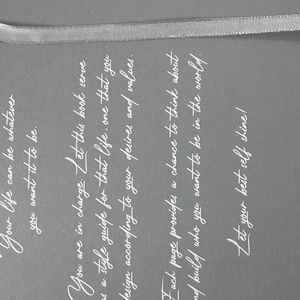 Your life can be whatever
you want it to be.
You are in charge. Let this book serve
as a style guide for that life, one that you
design according to your desires and values.
Each page provides a chance to think about
and build who you want to be in the world.
Let your best self shine!